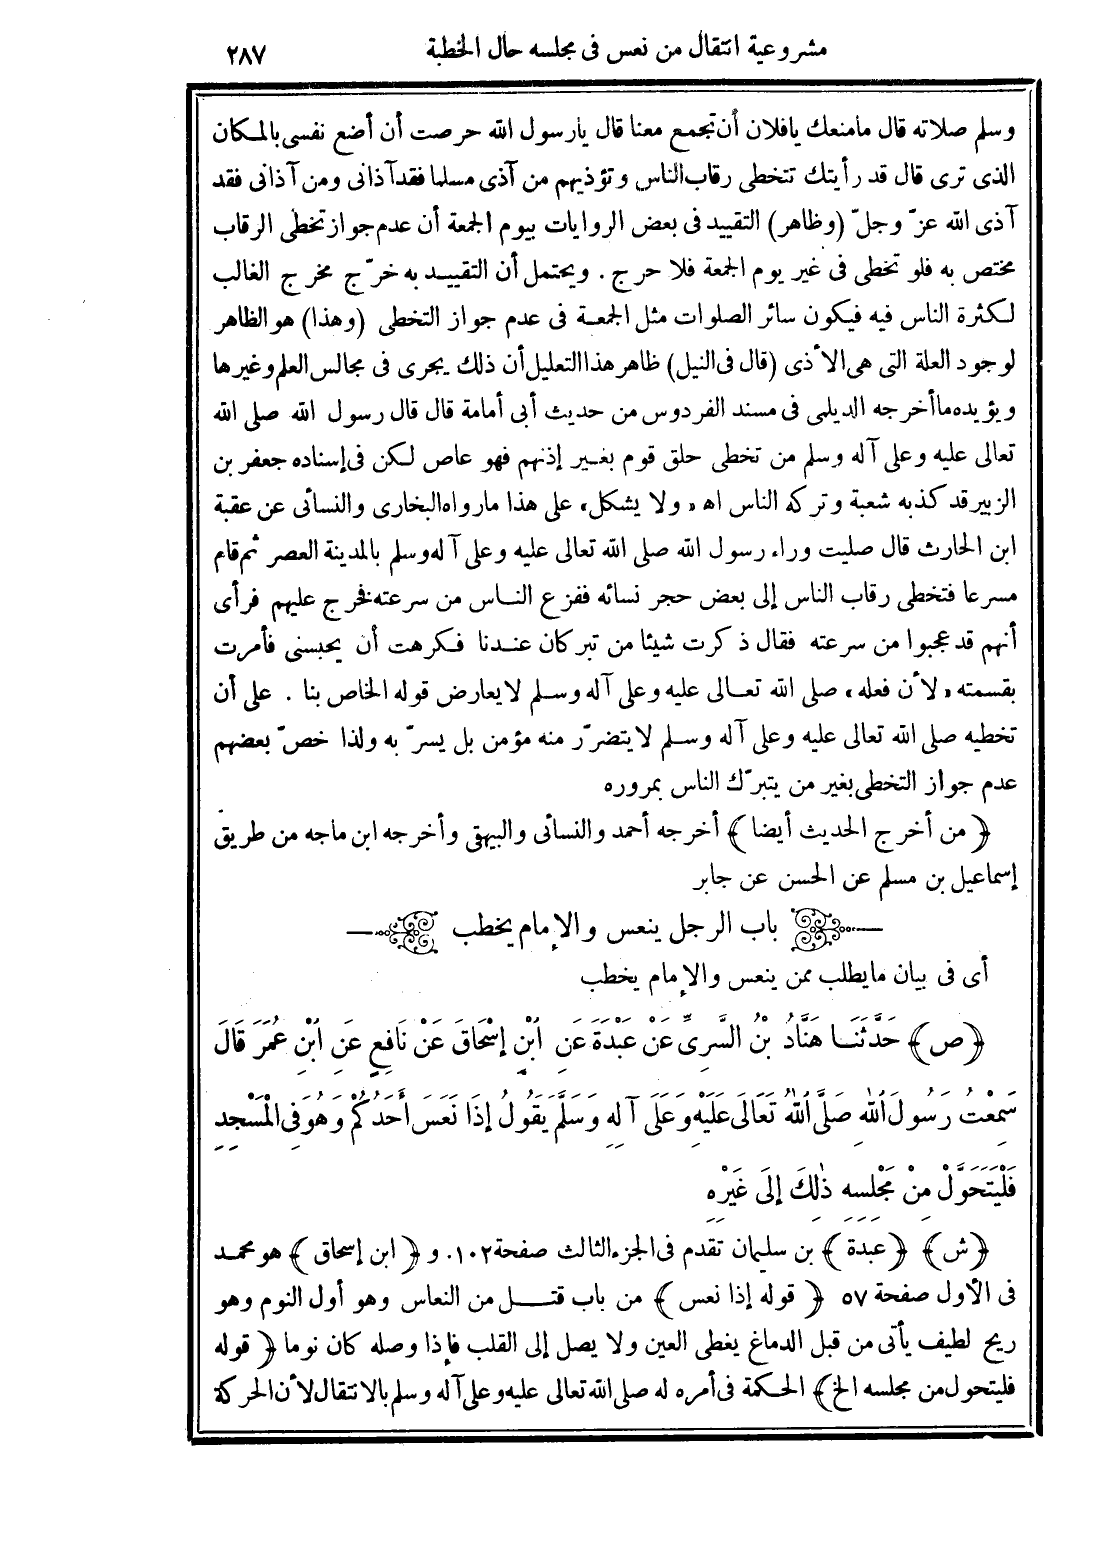 مشروعية انتقال من نعس فى مجلسه حال الخطبة ٢٨٧
وسلم صلاته قال مامنعك يافلان أن تجمع معنا قال يارسول الله حرصت أن أضع نفسى بالمكان
الذى ترى قال قد رأيتك تتخطى رقاب الناس وتؤذيهم من آذى مسلما فقد آذانى ومن آذانى فقد
آذى الله عزّ وجلّ (وظاهر) التقييد فى بعض الروايات بيوم الجمعة أن عدم جواز تخطى الرقاب
مختص به فلو تخطى فى غير يوم الجمعة فلا حرج . ويحتمل أن التقييد به خرّج مخرج الغالب
لكثرة الناس فيه فيكون سائر الصلوات مثل الجمعة فى عدم جواز التخطى (وهذا) هو الظاهر
لوجود العلة التى هى الأذى (قال فى النيل) ظاهر هذا التعليل أن ذلك يجرى فى مجالس العلم وغيرها
ويؤيده ماأخرجه الديلمى فى مسند الفردوس من حديث أبى أمامة قال قال رسول الله صلى الله
تعالى عليه وعلى آله وسلم من تخطى حلق قوم بغير إذنهم فهو عاص لكن فى إسناده جعفر بن
الزبير قد كذبه شعبة وتركه الناس اه «ولا يشكل» على هذا مارواه البخارى والنسائى عن عقبة
ابن الحارث قال صليت وراء رسول الله صلى الله تعالى عليه وعلى آله وسلم بالمدينة العصر ثم قام
مسرعا فتخطى رقاب الناس إلى بعض حجر نسائه ففزع الناس من سرعته فخرج عليهم فرأى
أنهم قد عجبوا من سرعته فقال ذكرت شيئا من تبر كان عندنا فكرهت أن يحبسنى فأمرت
بقسمته «لأن فعله» صلى الله تعالى عليه وعلى آله وسلم لايعارض قوله الخاص بنا . على أن
تخطيه صلى الله تعالى عليه وعلى آله وسلم لايتضرّر منه مؤمن بل يسرّ به ولذا خصّ بعضهم
عدم جواز التخطى بغير من يتبرّك الناس بمروره
﴿من أخرج الحديث أيضا﴾ أخرجه أحمد والنسائى والبيهقى وأخرجه ابن ماجه من طريق
إسماعيل بن مسلم عن الحسن عن جابر
باب الرجل ينعس والإمام يخطب
أى فى بيان مايطلب ممن ينعس والإمام يخطب
﴿ص﴾ حَدَّثَنَا هَنَّادُ بْنُ السَّرِىِّ عَنْ عَبْدَةَ عَنِ ابْنِ إِسْحَاقَ عَنْ نَافِعٍ عَنِ ابْنِ عُمَرَ قَالَ
سَمِعْتُ رَسُولَ اللهِ صَلَّى اللهُ تَعَالَى عَلَيْهِ وَعَلَى آلِهِ وَسَلَّمَ يَقُولُ إِذَا نَعَسَ أَحَدُكُمْ وَهُوَ فِى الْمَسْجِدِ
فَلْيَتَحَوَّلْ مِنْ مَجْلِسِهِ ذٰلِكَ إِلَى غَيْرِهِ
﴿ش﴾ ﴿عبدة﴾ بن سليمان تقدم فى الجزء الثالث صفحة ١٠٢. و ﴿ابن إسحاق﴾ هو محمد
فى الأول صفحة ٥٧ ﴿قوله إذا نعس﴾ من باب قتل من النعاس وهو أول النوم وهو
ريح لطيف يأتى من قبل الدماغ يغطى العين ولا يصل إلى القلب فإذا وصله كان نوما ﴿قوله
فليتحول من مجلسه الخ﴾ الحكمة فى أمره له صلى الله تعالى عليه وعلى آله وسلم بالانتقال لأن الحركة